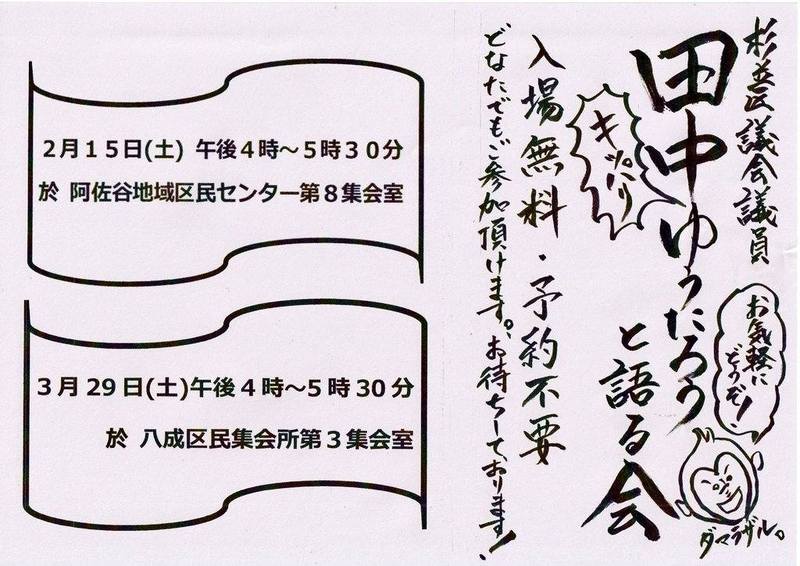 杉並区議会議員
田中ゆうたろう
と語る会
キッパリ
お気軽に
どうぞ！
ダマラザル。
入場無料・予約不要
どなたでもご参加頂けます。お待ちしております！
2月15日(土) 午後4時～5時30分
於 阿佐谷地域区民センター第8集会室
3月29日(土)午後4時～5時30分
於 八成区民集会所第3集会室